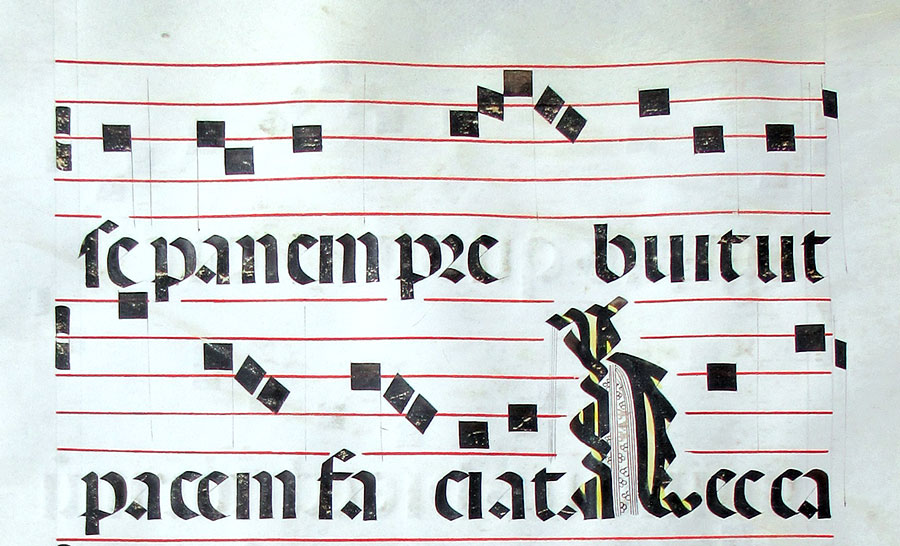 se panem pre buit ut
pacem fa ciat. Pecca